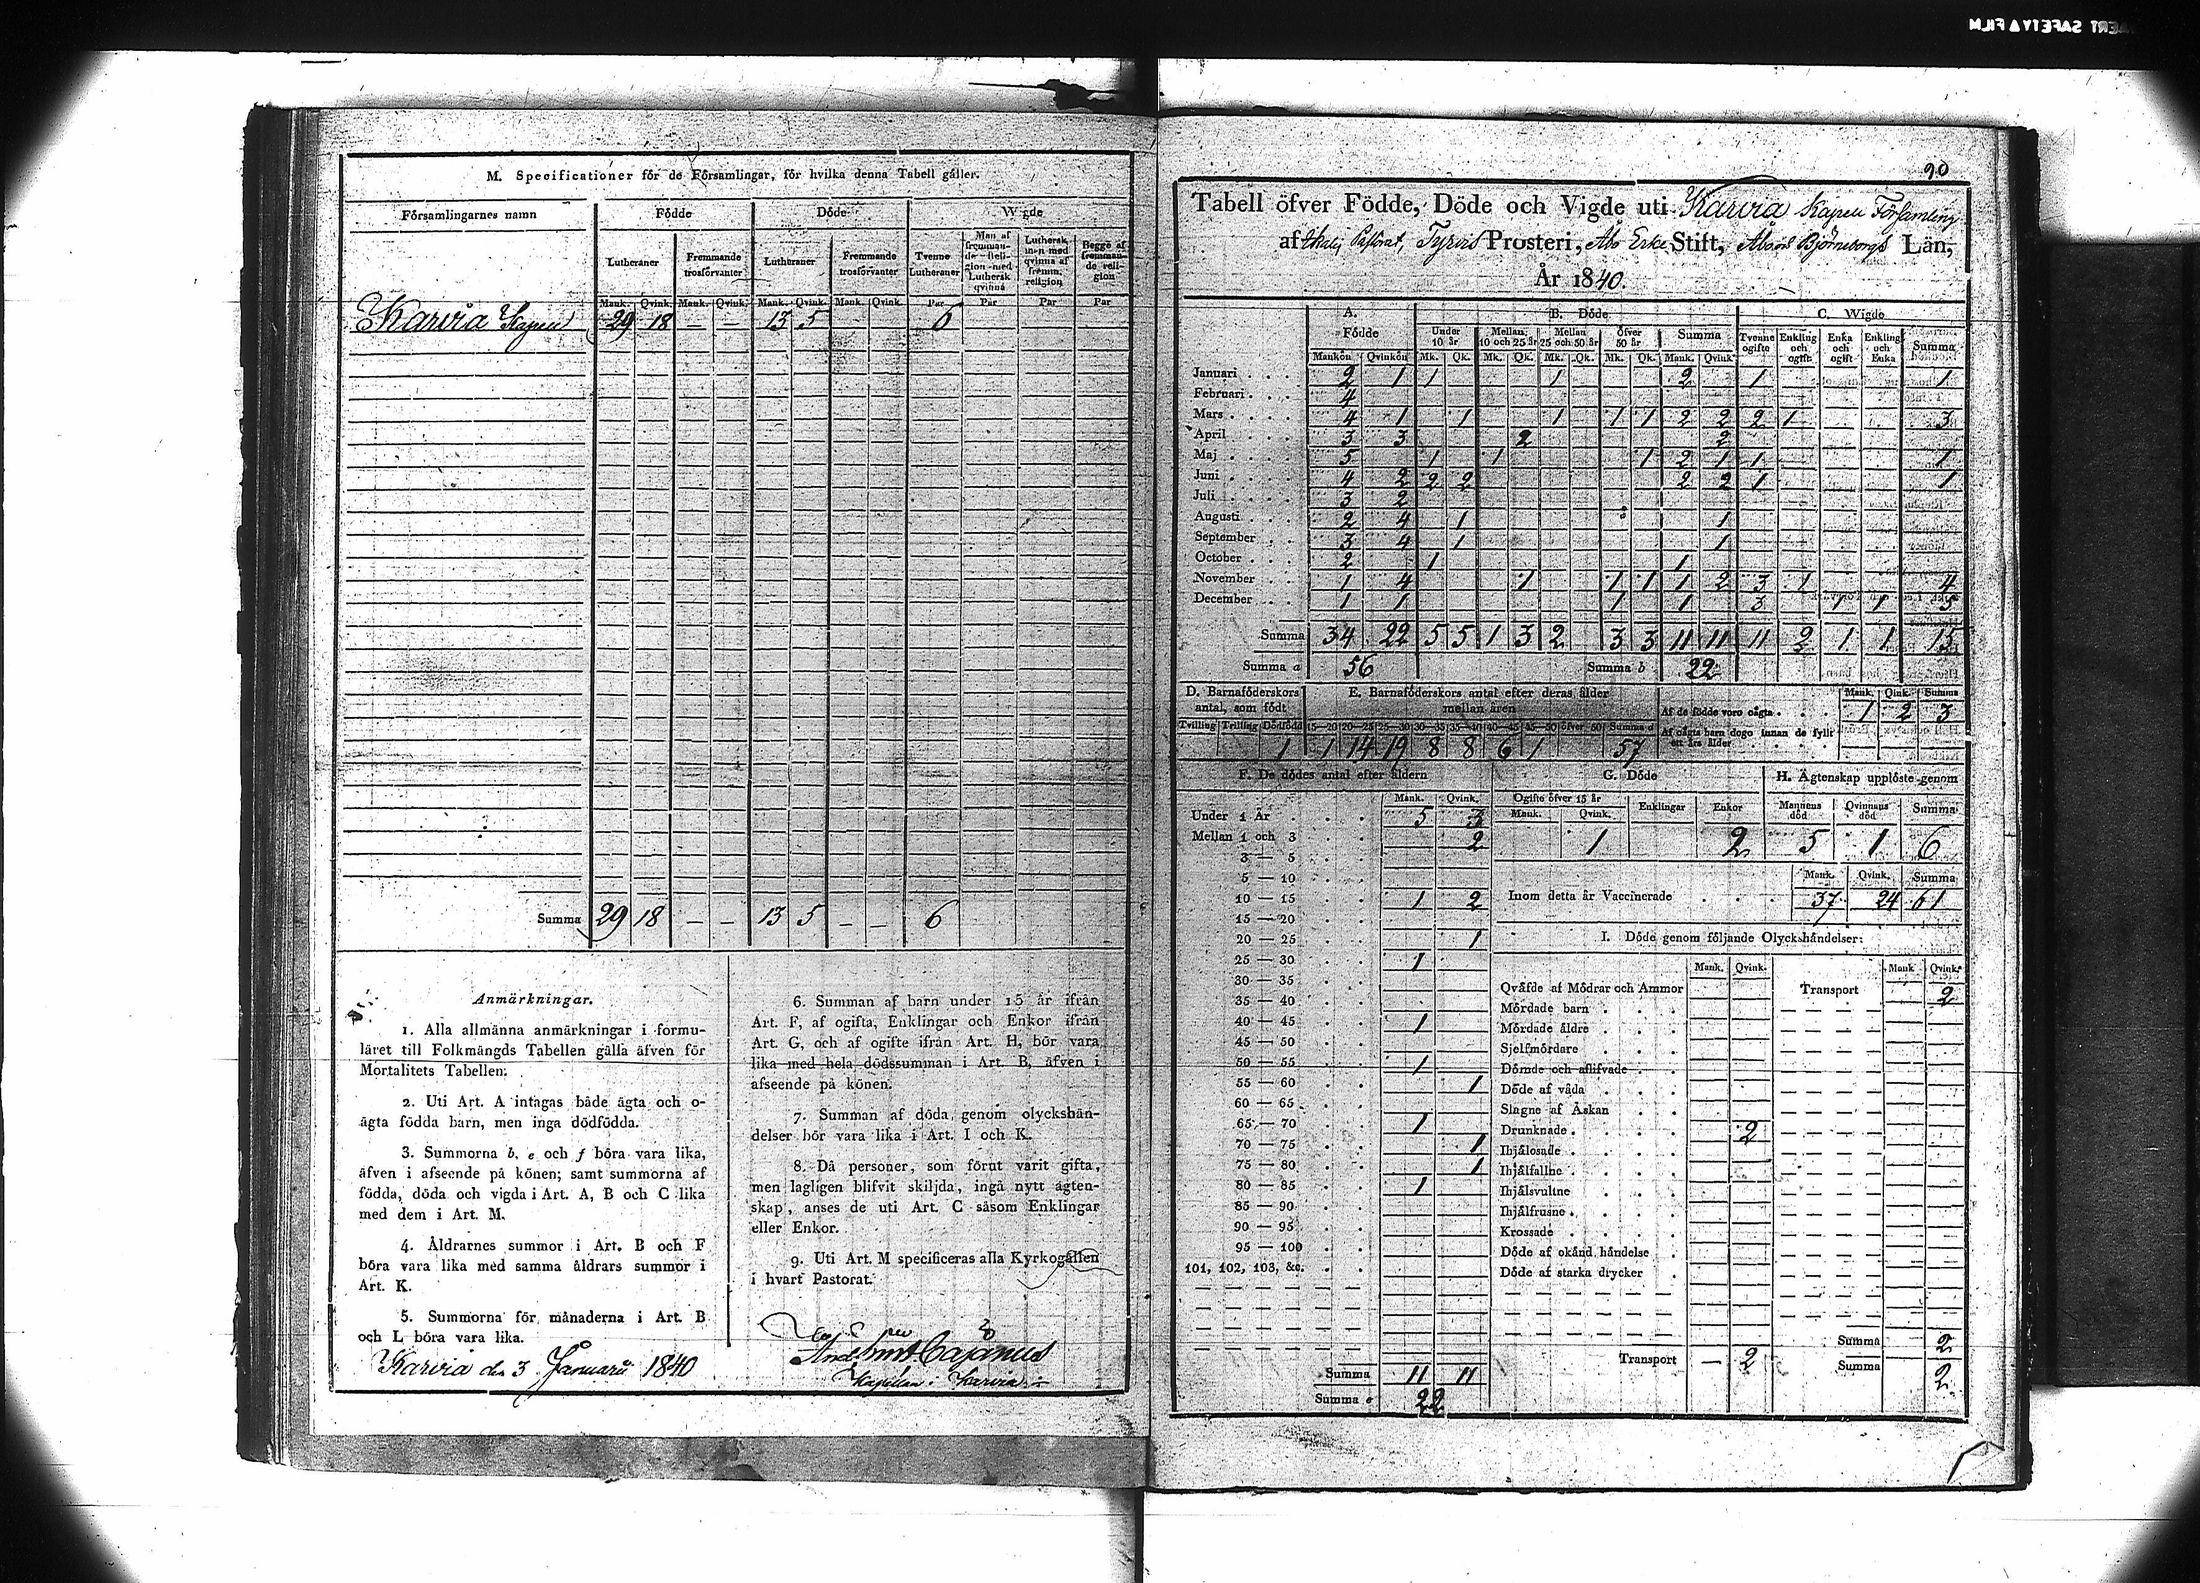 M. Specificationer för de Församlingar, för hvilka denna Tabell gäller.
Församlingarnes namn Födde Döde Wigde
Lutheraner Fremmande trosförvanter Lutheraner Fremmande trosförvanter Tvenne Lutheraner Man af fremmande religion med Luthersk qvinna Luthersk man med qvinna af fremm. religion Begge af fremmande religion
Mank. Qvink. Mank. Qvink. Mank. Qvink. Mank. Qvink. Par Par Par Par
Karvia Kapell 29 18 — — 13 5 — — 6
Summa 29 18 — — 13 5 — — 6
Anmärkningar.
1. Alla allmänna anmärkningar i formu-
läret till Folkmängds Tabellen gälla äfven för
Mortalitets Tabellen:
2. Uti Art. A intagas både ägta och o-
ägta födda barn, men inga dödfödda.
3. Summorna b, e och f böra vara lika,
äfven i afseende på könen; samt summorna af
födda, döda och vigda i Art. A, B och C lika
med dem i Art. M.
4. Åldrarnes summor i Art. B och F
böra vara lika med samma åldrars summor i
Art. K.
5. Summorna för månaderna i Art. B
och L böra vara lika.
Karvia den 3 Januarii 1840
6. Summan af barn under 15 år ifrån
Art. F, af ogifta, Enklingar och Enkor ifrån
Art. G, och af ogifte ifrån Art. H, bör vara
lika med hela dödssumman i Art. B, äfven i
afseende på könen.
7. Summan af döda genom olyckshän-
delser bör vara lika i Art. I och K.
8. Då personer, som förut varit gifta,
men lagligen blifvit skiljda, ingå nytt ägten-
skap, anses de uti Art. C såsom Enklingar
eller Enkor.
9. Uti Art. M specificeras alla Kyrkogällen
i hvart Pastorat.
Cajanus
Kapellan i Karvia
90
Tabell öfver Födde, Döde och Vigde uti Karvia Kapell Församling
af Ikalis Pastorat, Tyrvis Prosteri, Abo Erke Stift, Abo och Björneborgs Län,
År 1840.
A. Födde B. Döde C. Wigde
Under 10 år Mellan 10 och 25 år Mellan 25 och 50 år Öfver 50 år Summa Tvenne ogifte Enkling och ogift Enka och ogift Enkling och Enka Summa
Mankön Qvinkön Mk. Qk. Mk. Qk. Mk. Qk. Mk. Qk. Mank. Qvink.
Januari 2 1 1 1 2 1 1
Februari 4
Mars 4 1 1 1 1 1 2 2 2 1 3
April 3 3 2 2
Maj 5 1 1 1 2 1 1 1
Juni 4 2 2 2 2 2 1 1
Juli 3 2
Augusti 2 4 1 1
September 3 4 1 1
October 2 1 1
November 1 4 1 1 1 1 2 3 1 4
December 1 1 1 1 3 1 1 5
Summa 34 22 5 5 1 3 2 3 3 11 11 11 2 1 1 15
Summa a 56 Summa b 22
D. Barnaföderskors antal, som födt
Tvilling Trilling Dödfödd
1
E. Barnaföderskors antal efter deras ålder mellan åren
15—20 20—25 25—30 30—35 35—40 40—45 45—50 öfver 50 Summa d
1 14 19 8 8 6 1 57
Mank. Qink. Summa
Af de födde voro oägta 1 2 3
Af oägta barn dogo innan de fyllt
ett års ålder
F. De dödes antal efter åldern
Mank. Qvink.
Under 1 År 5 3
Mellan 1 och 3 2
3 — 5
5 — 10
10 — 15 1 2
15 — 20
20 — 25 1
25 — 30 1
30 — 35
35 — 40
40 — 45 1
45 — 50
50 — 55 1
55 — 60 1
60 — 65
65 — 70 1
70 — 75 1
75 — 80 1
80 — 85 1
85 — 90
90 — 95
95 — 100
101, 102, 103, &c.
Summa 11 11
Summa e 22
G. Döde
Ogifte öfver 15 år Enklingar Enkor
Mank. Qvink.
1 2
H. Ägtenskap upplöste genom
Mannens död Qvinnans död Summa
5 1 6
Mank. Qvink. Summa
Inom detta år Vaccinerade 37 24 61
I. Döde genom följande Olyckshändelser:
Mank. Qvink. Mank Qvink.
Qväfde af Mödrar och Ammor Transport 2
Mördade barn
Mördade äldre
Sjelfmördare
Dömde och aflifvade
Döde af våda
Slagne af Åskan
Drunknade 2
Ihjälosade
Ihjälfallne
Ihjälsvultne
Ihjälfrusne
Krossade
Döde af okänd händelse
Döde af starka drycker
Summa 2
Transport — 2 Summa 2